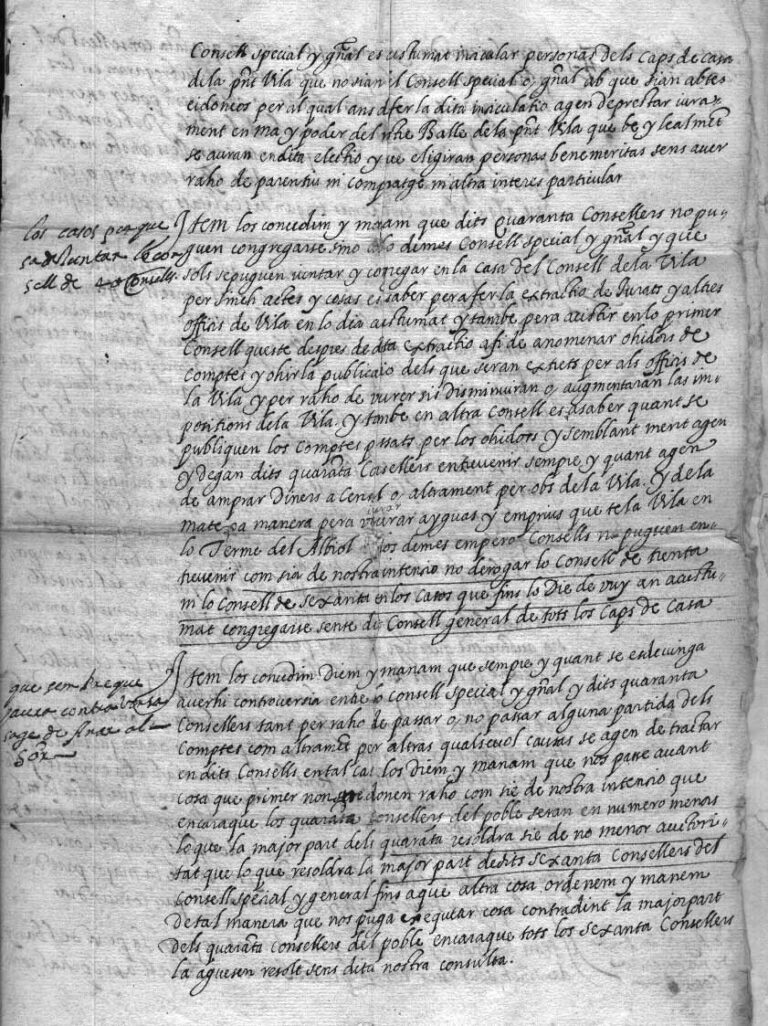 Consell special y gñal es custumat insacular personas dels caps de casa
de la pñt Vila que no sian del Consell special o, gñal ab que sian abtes
e idoneos per al qual ans de fer la dita insaculatio agen de prestar jura-
ment en ma y poder del nthe Balle de la pñt Vila que be y lealmẽt
se auran en dita electio y que eligiran personas benemeritas sens auer
raho de parentiu ni compratge ni altra interes particular
los casos per que
se de juntar lo con
sell de 40 Consells
Item los concedim y manam que dits Quaranta Consellers no pu-
guen congregarse sino ab lo demes Consell special y gñal y que
sols se puguen juntar y congegar en la casa del Consell de la Vila
per sinch actes y cosas es saber pera fer la extractio de Jurats y altres
officis de Vila en lo dia acustumat y tambe pera assistir en lo primer
Consell que se te despres de dita extractio afi de anomenar ohidors de
Comptes y ohir la publicaio dels que seran extrets per als officis de
la Vila y per raho de veurer si s disminuiran o, augmentaran las im-
positions de la Vila, y tambe en altra Consell es a saber quant se
publiquen los Comptes pssats per los ohidors y semblant ment agen
y degan dits quarãta Casellers entreuenir sempre y quant agen
de amprar diners a Censal o, altrament per obs de la Vila, y de la
matexa manera pera lliurar ayguas y emprius que te la Vila en
lo Terme del Albiol los demes empero Consells no puguen en-
treuenir com sia de nostra intensio no derogar lo Consell de trenta
ni lo Consell de sexanta en los Casos que fins lo Die de vuy an acustu-
mat congregarse sens de Consell general de tots los Caps de Casa
que sempre que
y auer controuersia
sage de anar al
Sõr
Item los concedim Diem y manam que sempre y quant se esdeuinga
auerhi controuersia entre o Consell special y gñal y dits quaranta
Consellers tant per raho de passar o, no passar alguna partida dels
Comptes com altramẽt per altras qualseuol causas se agen de tractar
en dits Consells en tal cas los diem y manam que nos passe auant
cosa que primer non se donen raho com sie de nostra intensio que
encaraque los quarãta Consellers del poble seran en numero menors
lo que la major part dels quarãta resoldra sie de no menor auctori-
tat que lo que resoldra la major part de dits sexanta Consellers del
Consell special y general fins a que altra cosa ordenem y manem
de tal manera que nos puga exequtar cosa contradint la major part
dels quarãta consellers del poble encaraque tots los sexanta Consellers
la aguesen resolt sens dita nostra consulta.